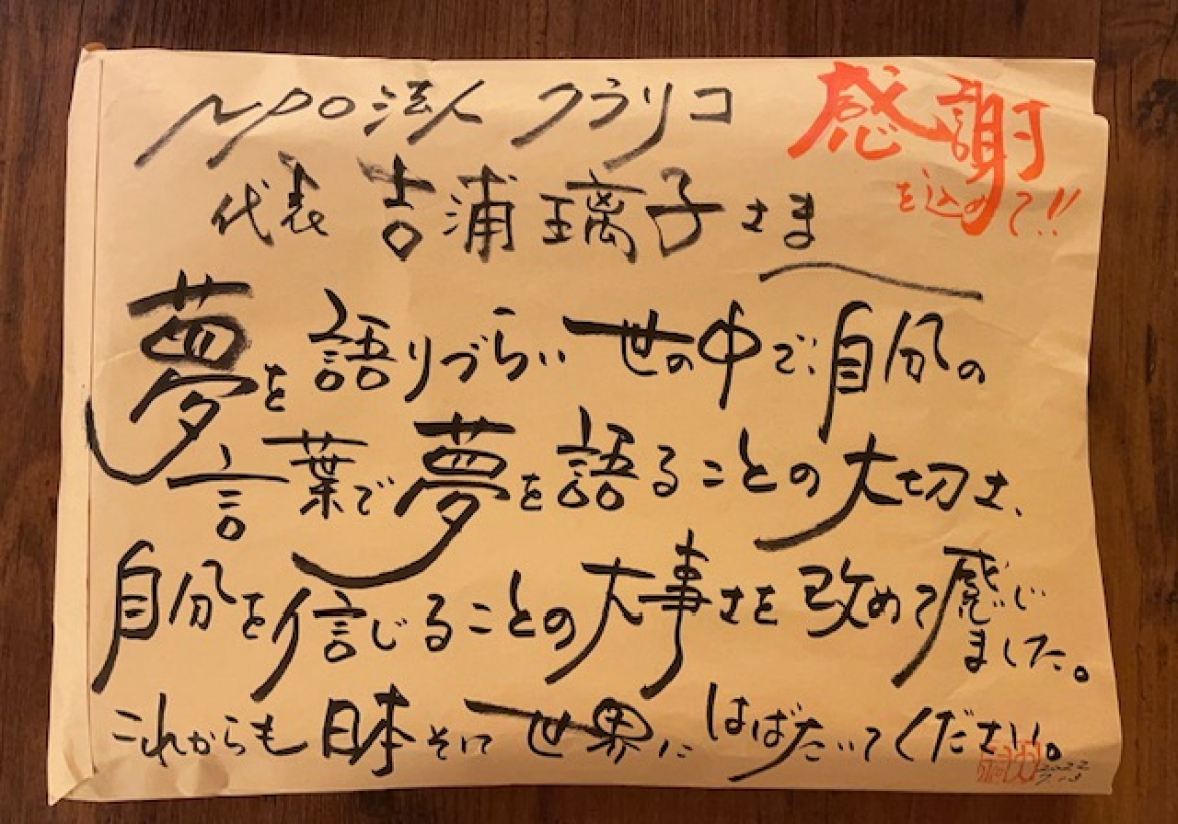 NPO法人 クラリコ
代表 吉浦 璃子さま
感謝
を込めて!!
夢を語りづらい世の中で、自分の
言葉で夢を語ることの大切さ、
自分を信じることの大事さを改めて感じ
ました。
これからも日本そして世界にはばたいてください。
2022
7.13